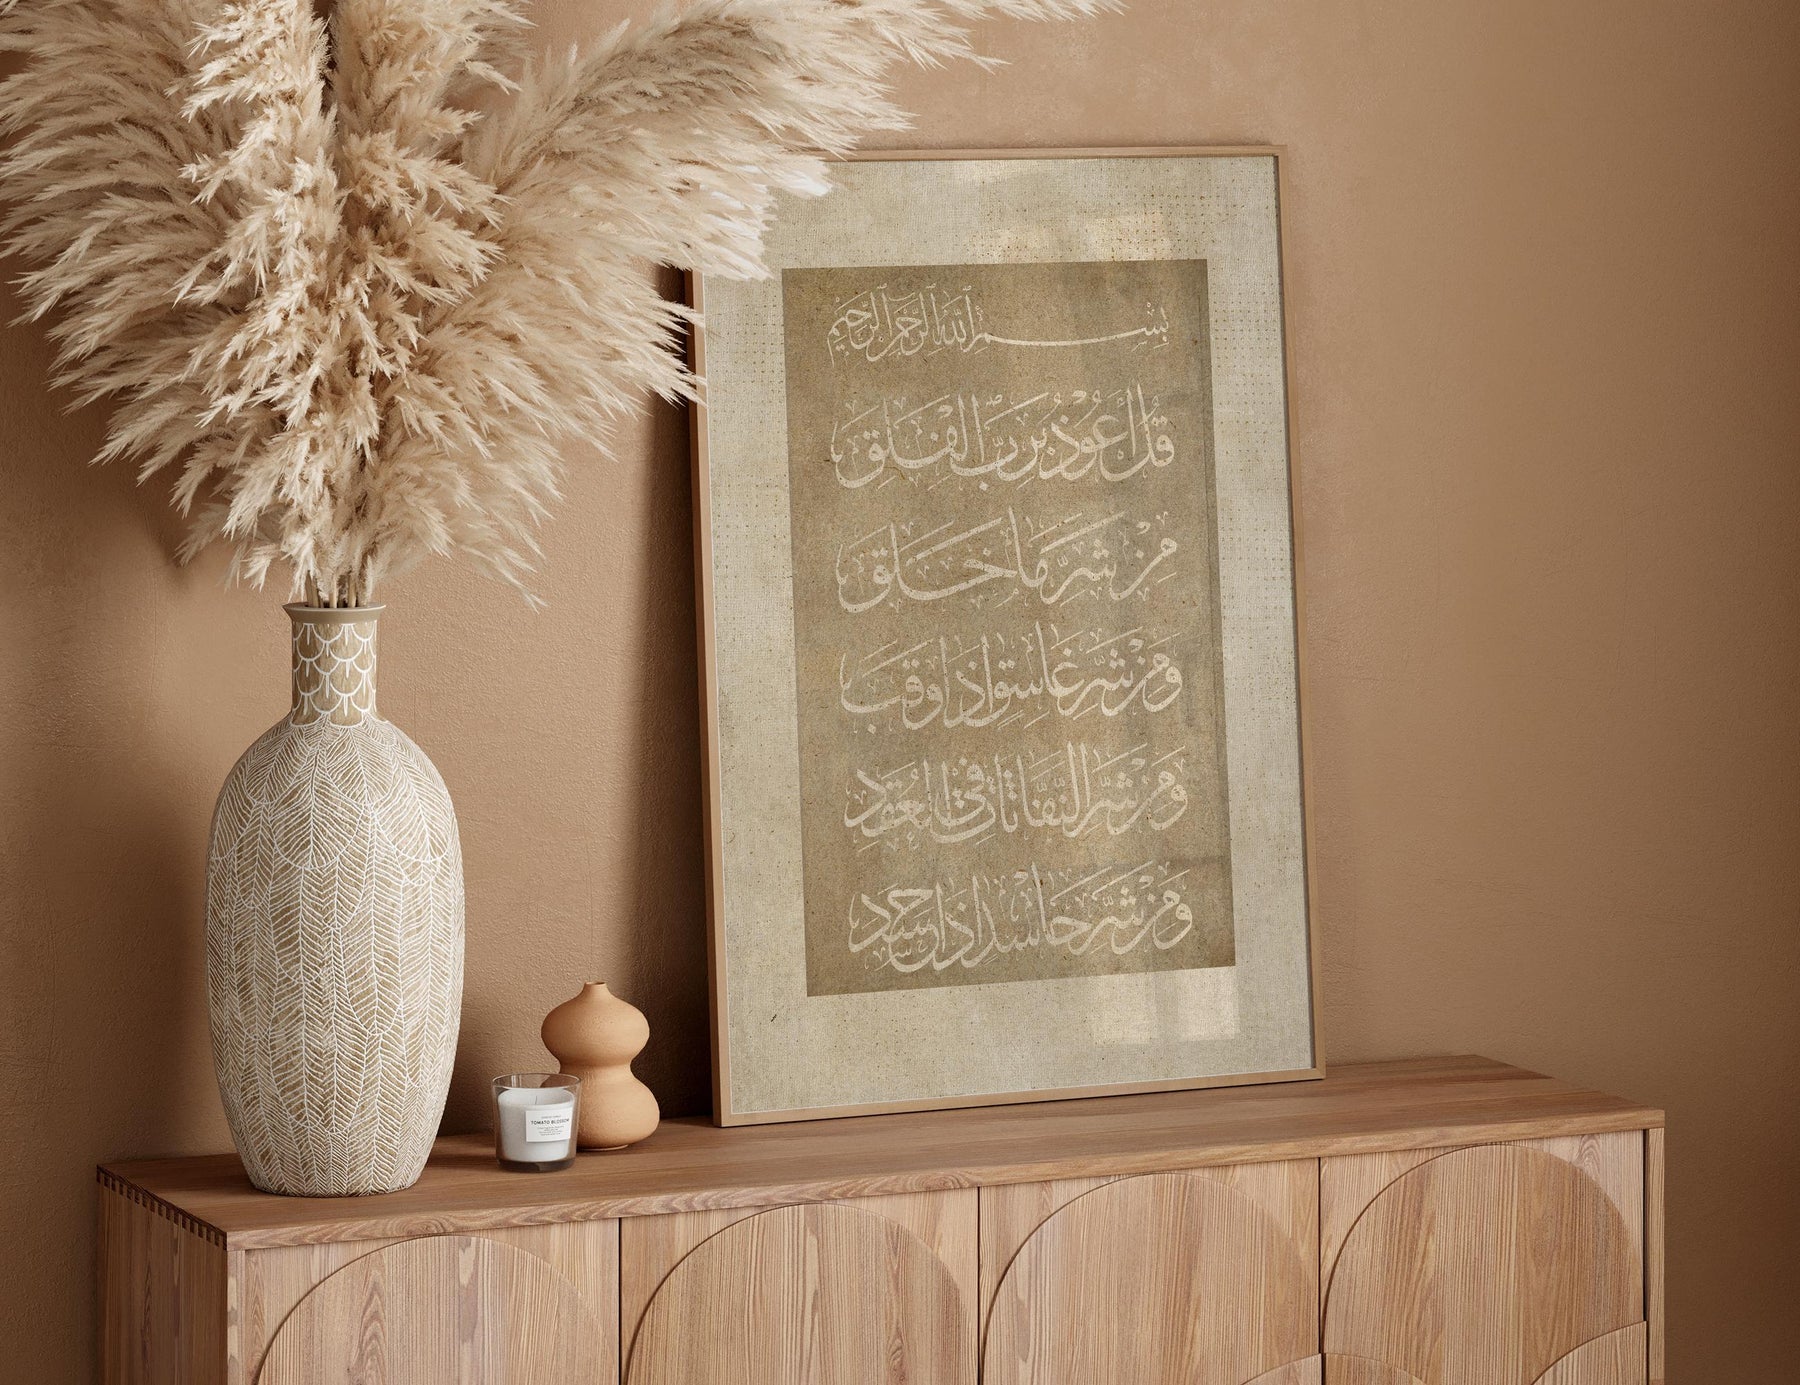 بِسْمِ اللَّهِ الرَّحْمَٰنِ الرَّحِيمِ
قُلْ أَعُوذُ بِرَبِّ الْفَلَقِ
مِنْ شَرِّ مَا خَلَقَ
وَمِنْ شَرِّ غَاسِقٍ إِذَا وَقَبَ
وَمِنْ شَرِّ النَّفَّاثَاتِ فِي الْعُقَدِ
وَمِنْ شَرِّ حَاسِدٍ إِذَا حَسَدَ
TOMATO BLOSSOM